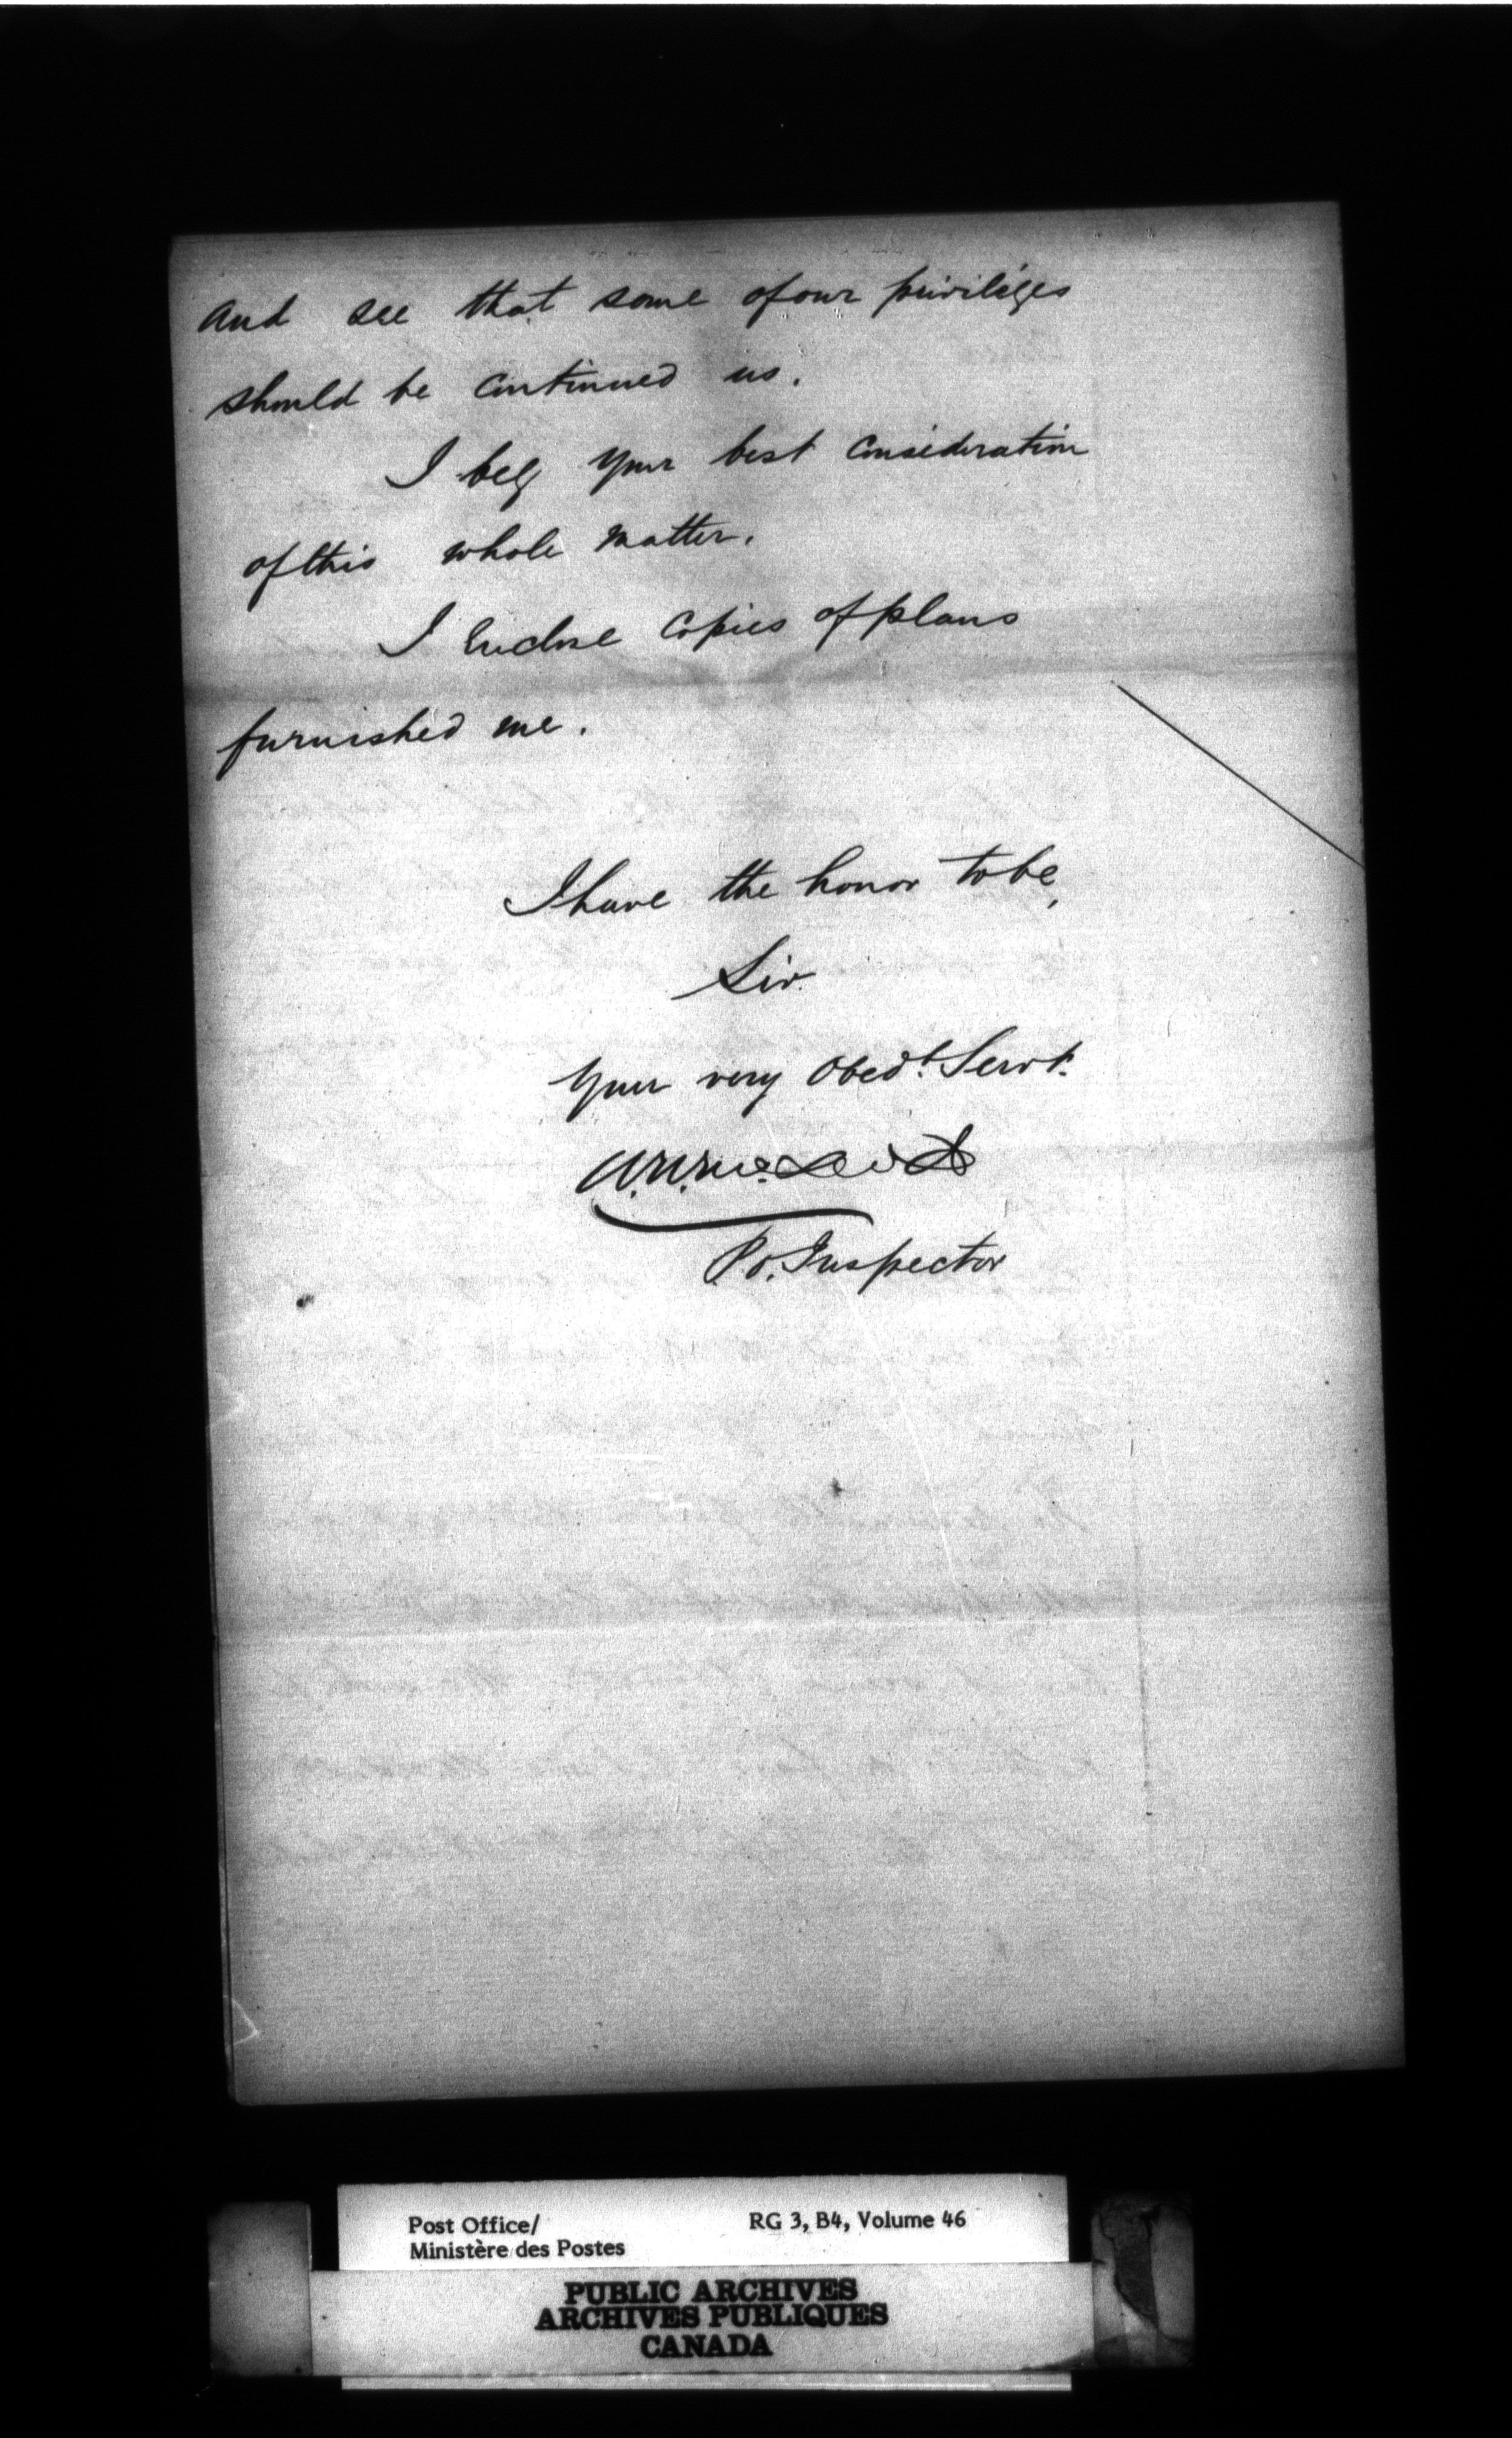 and see that some of our privileges
should be continued us.
I beg your best consideration
of this whole matter.
I enclose copies of plans
furnished me.
I have the honor to be,
Sir
Your very Obedt. Servt.
P.O. Inspector
Post Office/
Ministère des Postes
RG 3, B4, Volume 46
PUBLIC ARCHIVES
ARCHIVES PUBLIQUES
CANADA